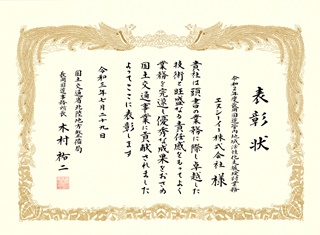 表彰状
令和2年度長岡国道管内地域活性化支援検討業務
エヌシーイー株式会社 様
貴社は頭書の業務に際し卓越した
技術と旺盛なる責任感をもってよく
業務を完遂し優秀な成果をおさめ
国土交通事業に貢献されました
よってここに表彰します
令和三年七月二十九日
国土交通省北陸地方整備局
長岡国道事務所長 木村祐二